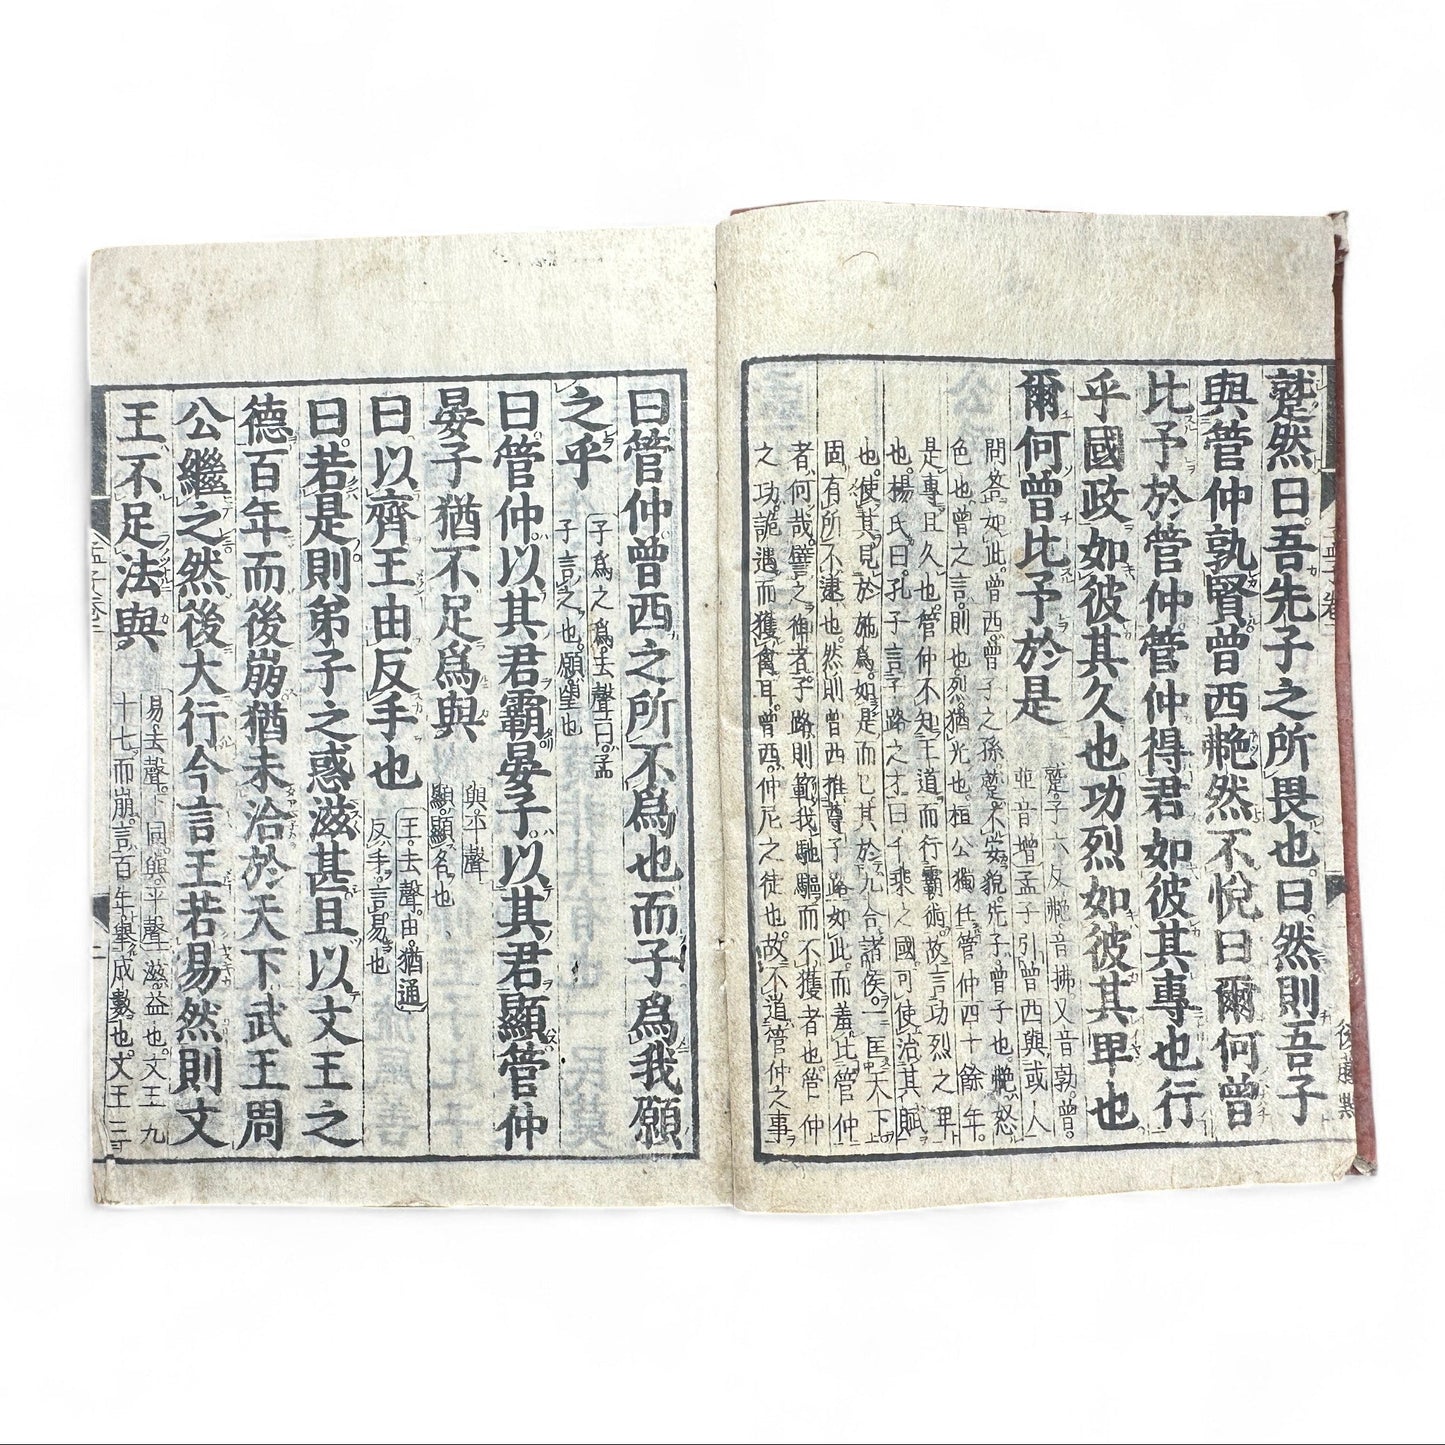 蹵然曰吾先子之所畏也曰然則吾子
與管仲孰賢曾西艴然不悅曰爾何曾
比予於管仲管仲得君如彼其專也行
乎國政如彼其久也功烈如彼其卑也
爾何曾比予於是
蹵子六反艴音拂又音勃曾
並音增孟子引曾西與或人
問答如此曾西曾子之孫蹵不安貌先子曾子也艴怒
色也曾之言則也烈猶光也桓公獨任管仲四十餘年
是專且久也管仲不知王道而行霸術故言功烈之卑
也楊氏曰孔子言子路之才曰千乘之國可使治其賦
也使其見於施爲如是而已其於九合諸侯一匡天下
固有所不逮也然則曾西推尊子路如此而羞比管仲
者何哉譬之御者子路則範我馳驅而不獲者也管仲
之功詭遇而獲禽耳曾西仲尼之徒也故不道管仲之事
曰管仲曾西之所不爲也而子爲我願
之乎
子爲之爲去聲曰孟
子言之也願望也
曰管仲以其君霸晏子以其君顯管仲
晏子猶不足爲與
與平聲
顯顯名也
曰以齊王由反手也
王去聲由猶通
反手言易也
曰若是則弟子之惑滋甚且以文王之
德百年而後崩猶未洽於天下武王周
公繼之然後大行今言王若易然則文
王不足法與
易去聲下同與平聲滋益也文王九
十七而崩言百年舉成數也文王三